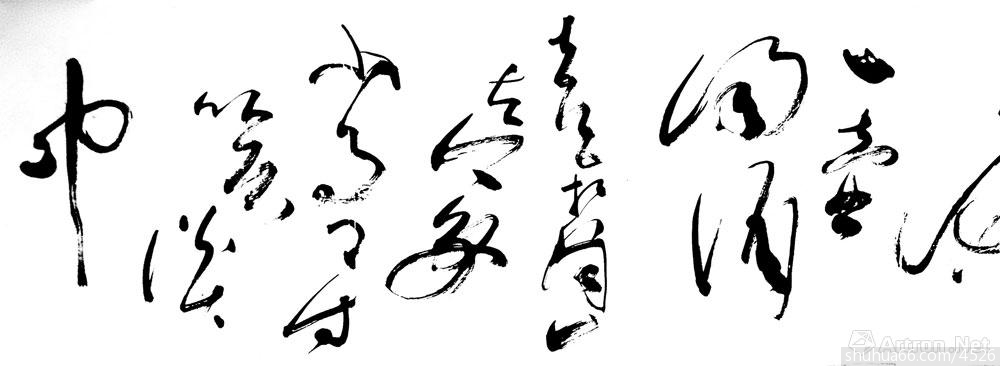 一壺
濁酒
喜相逢
古今多
少事都付
笑談
中
Artron.Net
shuhua66.com/4526